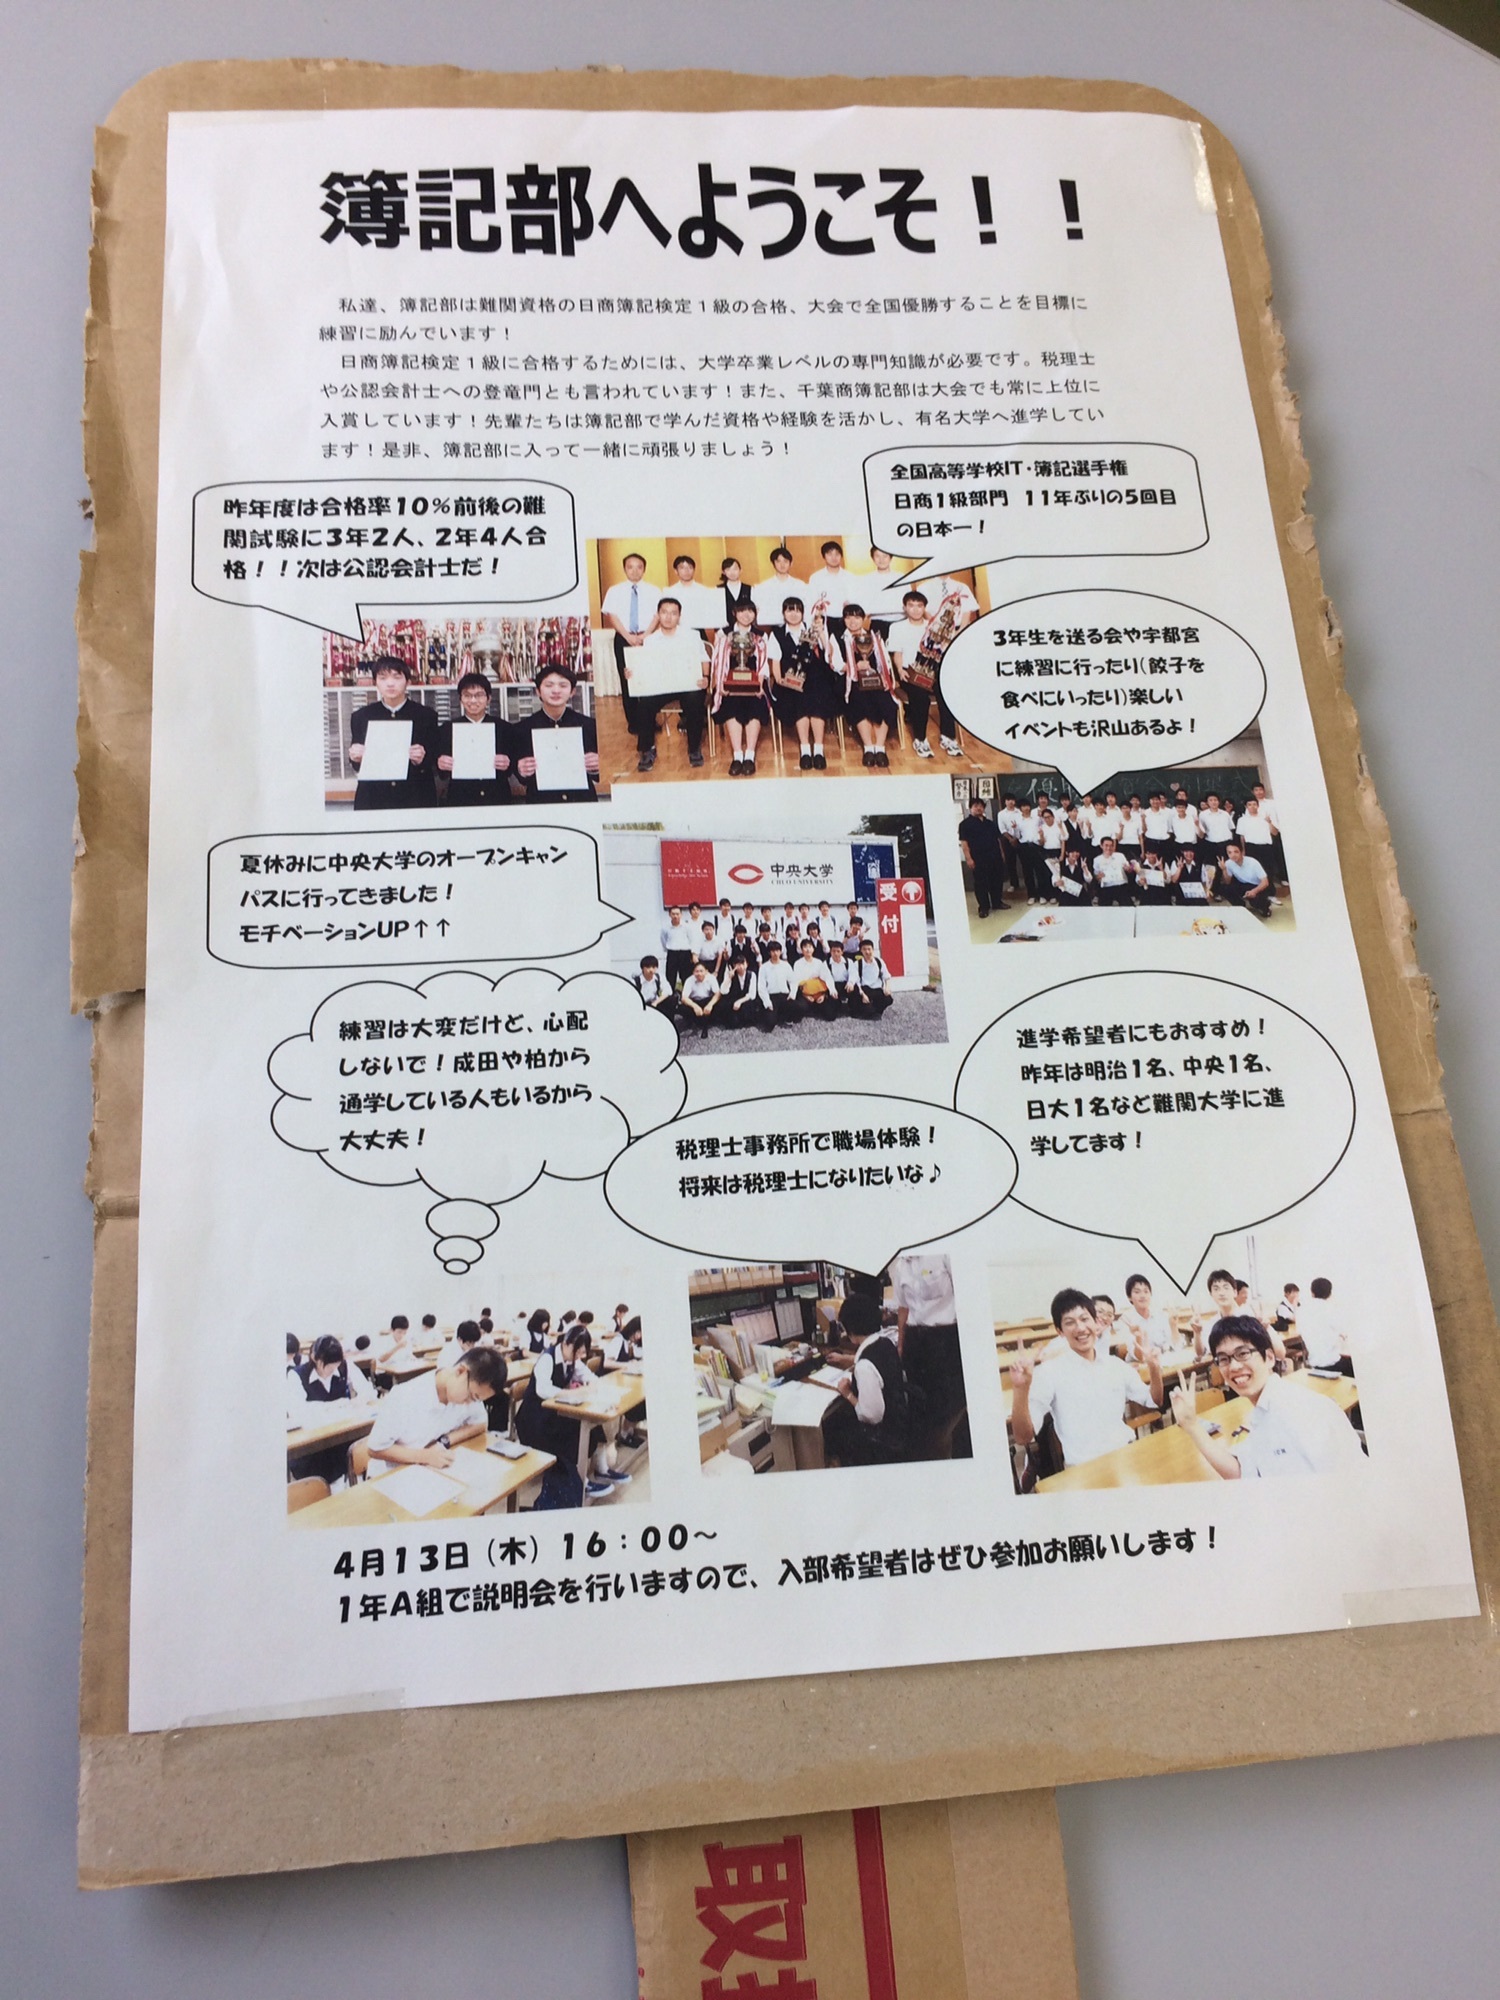 簿記部へようこそ！！
私達、簿記部は難関資格の日商簿記検定１級の合格、大会で全国優勝することを目標に
練習に励んでいます！
日商簿記検定１級に合格するためには、大学卒業レベルの専門知識が必要です。税理士
や公認会計士への登竜門とも言われています！また、千葉商簿記部は大会でも常に上位に
入賞しています！先輩たちは簿記部で学んだ資格や経験を活かし、有名大学へ進学してい
ます！是非、簿記部に入って一緒に頑張りましょう！
昨年度は合格率１０％前後の難
関試験に３年２人、２年４人合
格！！次は公認会計士だ！
全国高等学校IT・簿記選手権
日商１級部門　１１年ぶりの５回目
の日本一！
３年生を送る会や宇都宮
に練習に行ったり（餃子を
食べにいったり）楽しい
イベントも沢山あるよ！
夏休みに中央大学のオープンキャン
パスに行ってきました！
モチベーションUP↑↑
中央大学
CHUO UNIVERSITY
受付
練習は大変だけど、心配
しないで！成田や柏から
通学している人もいるから
大丈夫！
税理士事務所で職場体験！
将来は税理士になりたいな♪
進学希望者にもおすすめ！
昨年は明治１名、中央１名、
日大１名など難関大学に進
学してます！
４月１３日（木）１６：００～
１年Ａ組で説明会を行いますので、入部希望者はぜひ参加お願いします！
取扱